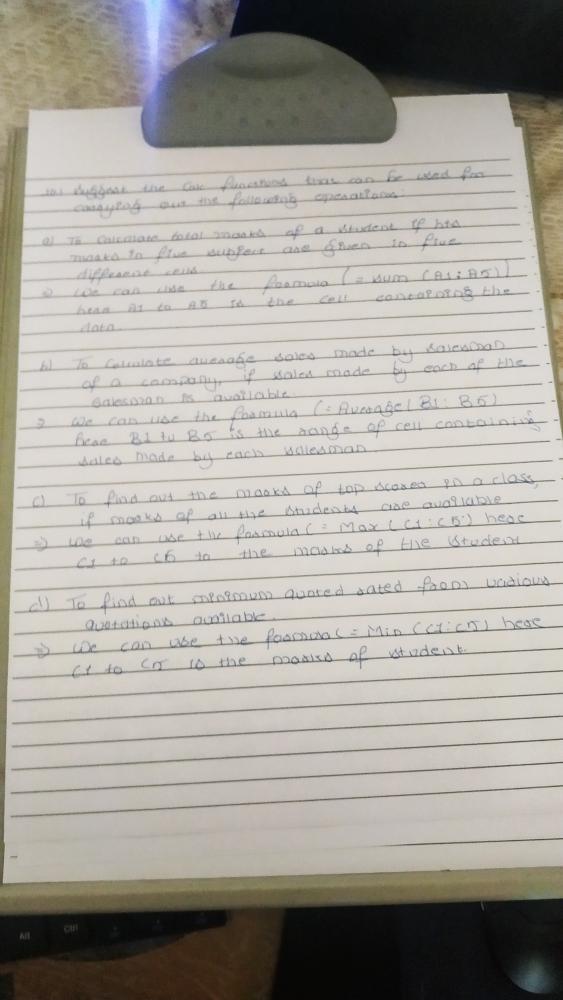 10) Suggest the Calc functions that can be used for
carrying out the following operations:
a) To calculate total marks of a student if his
marks in five subject are given in five
different cells.
⇒ We can use the formula (= sum (A1:A5))
hear A1 to A5 is the cell containing the
data.
b) To calculate average sales made by salesman
of a company, if sales made by each of the
salesman is available.
⇒ We can use the formula (= Average( B1: B5)
here B1 to B5 is the range of cell containing
sales made by each salesman.
c) To find out the marks of top scorer in a class,
if marks of all the students are available
⇒ We can use the formula (= Max ( C1:C5) here
C1 to C5 to the marks of the student
d) To find out minimum quoted rated from various
quotations available.
⇒ We can use the formula (= Min (C1:C5) here
C1 to C5 is the marks of student.
Alt
Ctrl